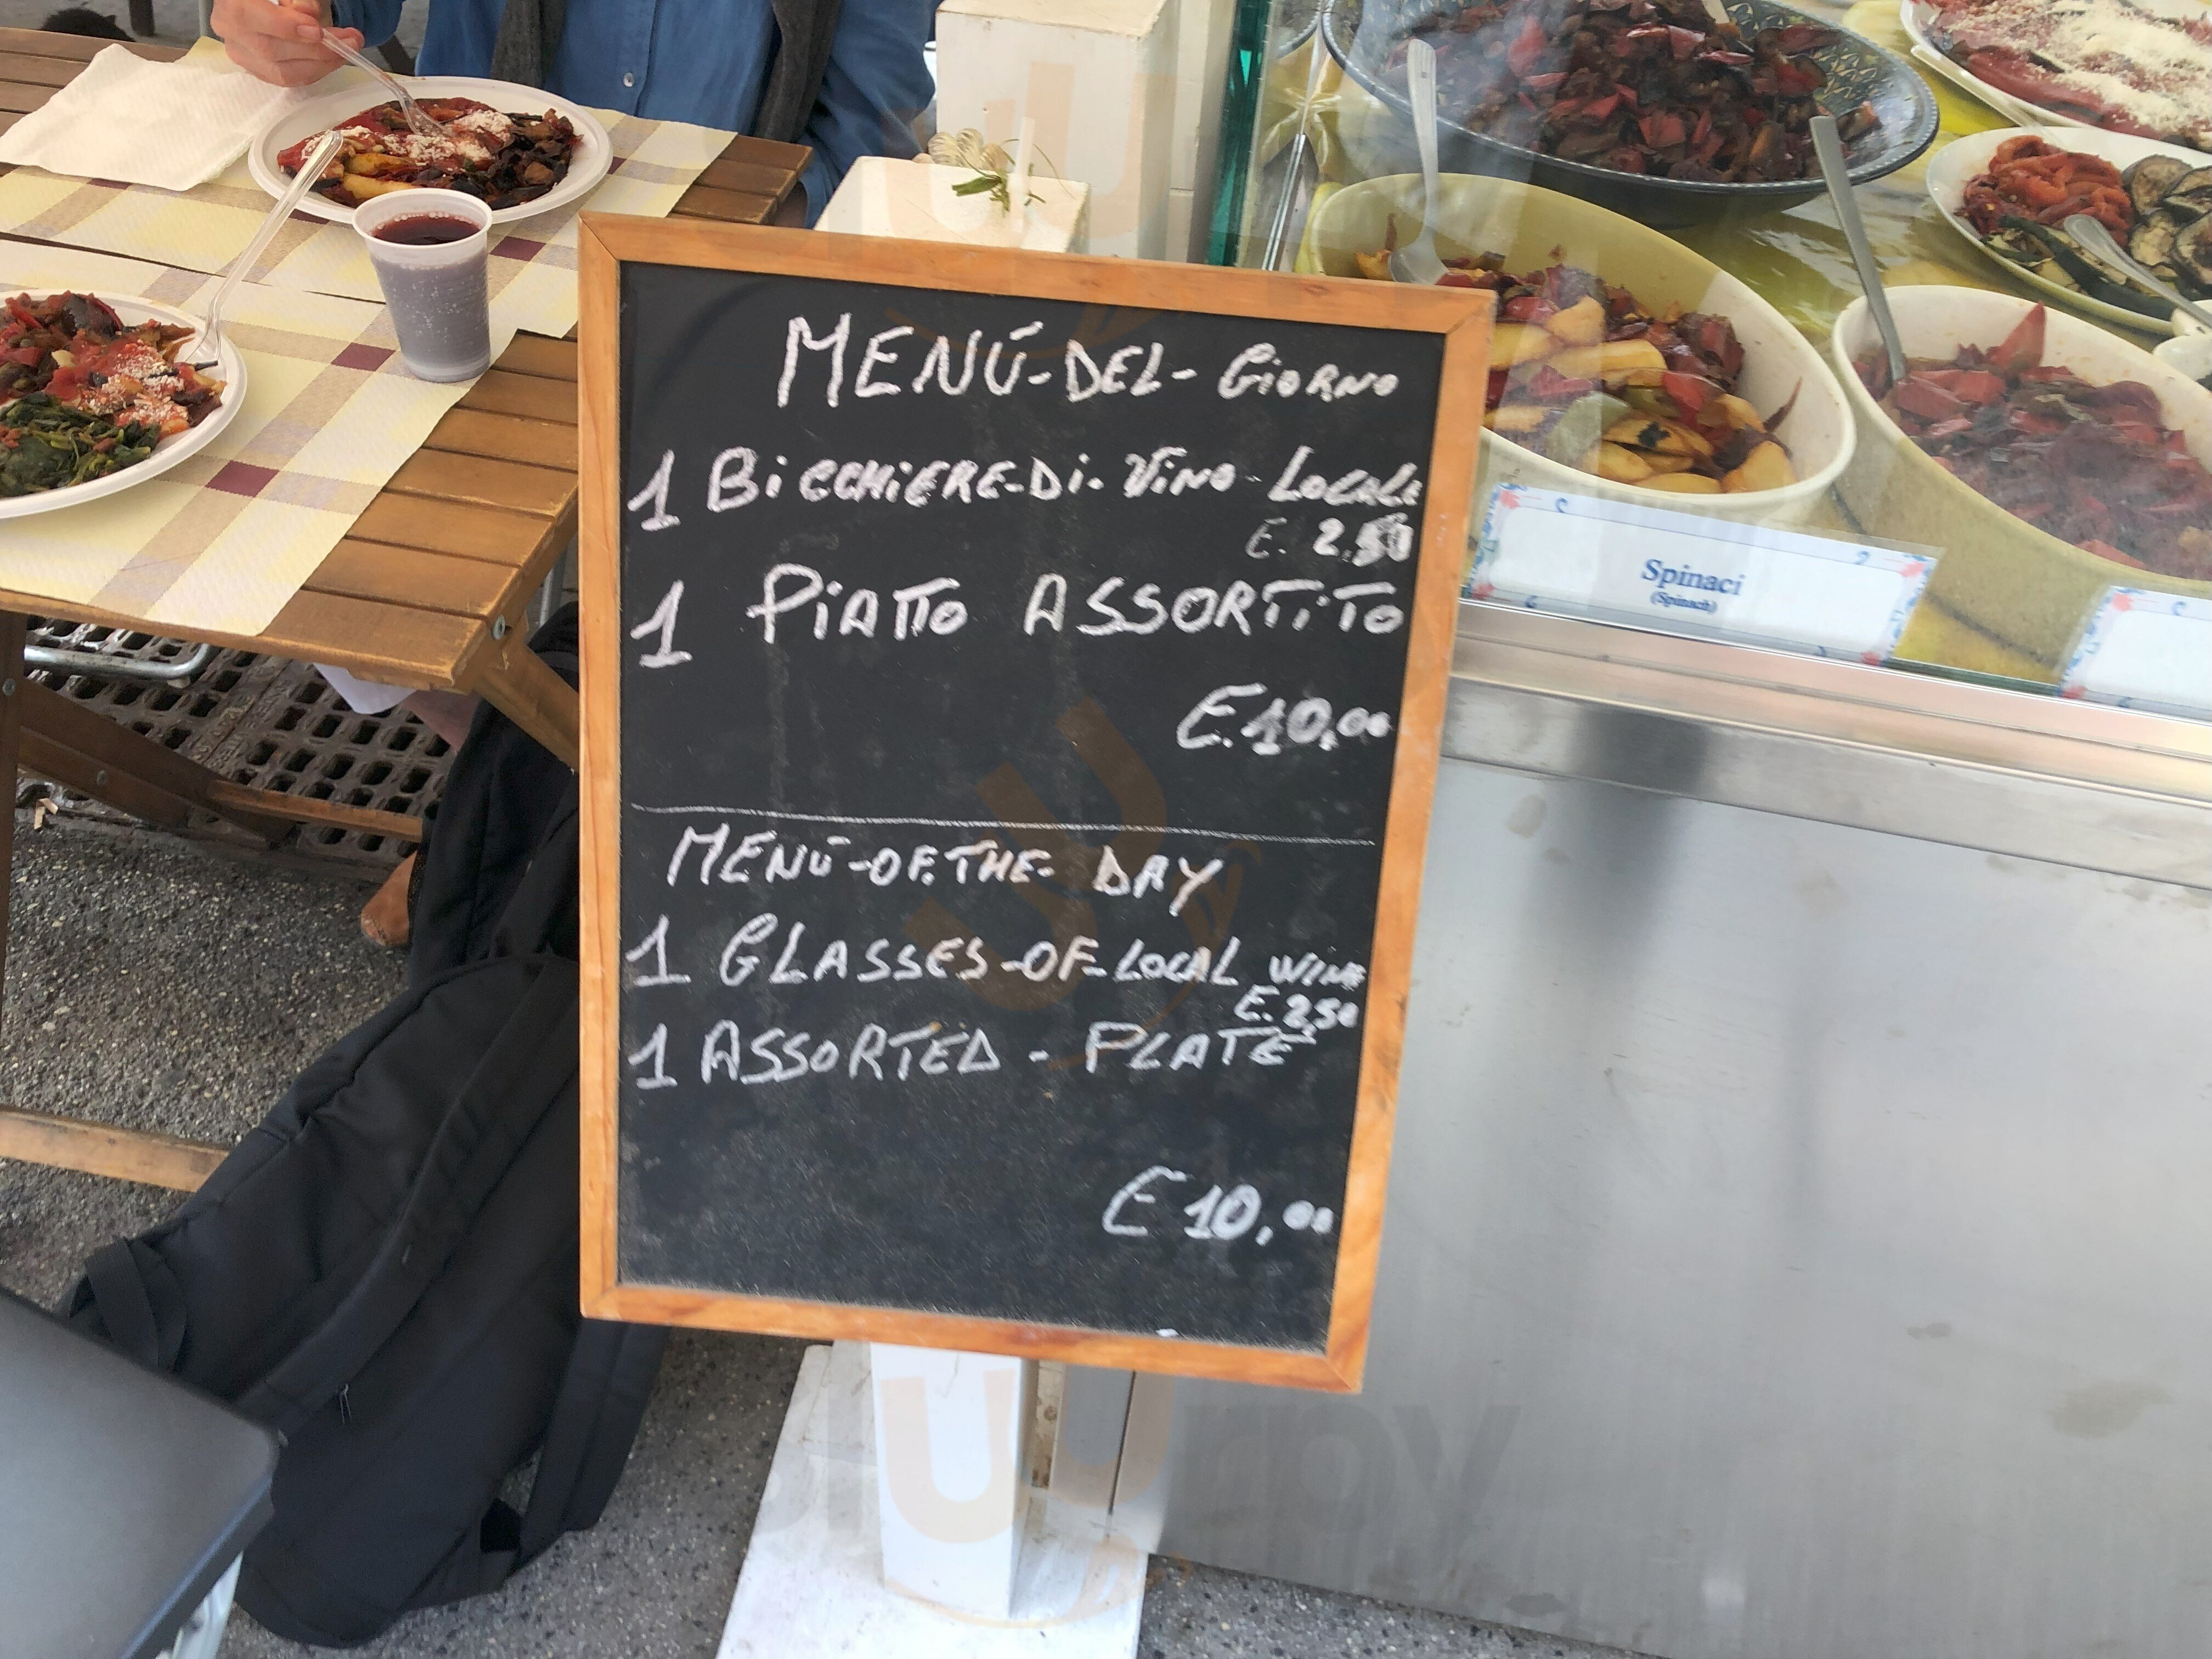 MENÚ-DEL-GIORNO
1 BICCHIERE-DI-VINO-LOCALE
E. 2,50
1 PIATTO ASSORTITO
E. 10,00
MENÚ-OF.THE-DAY
1 GLASSES-OF-LOCAL WINE
E. 2,50
1 ASSORTED-PLATE
E 10,00
Spinaci
(Spinach)